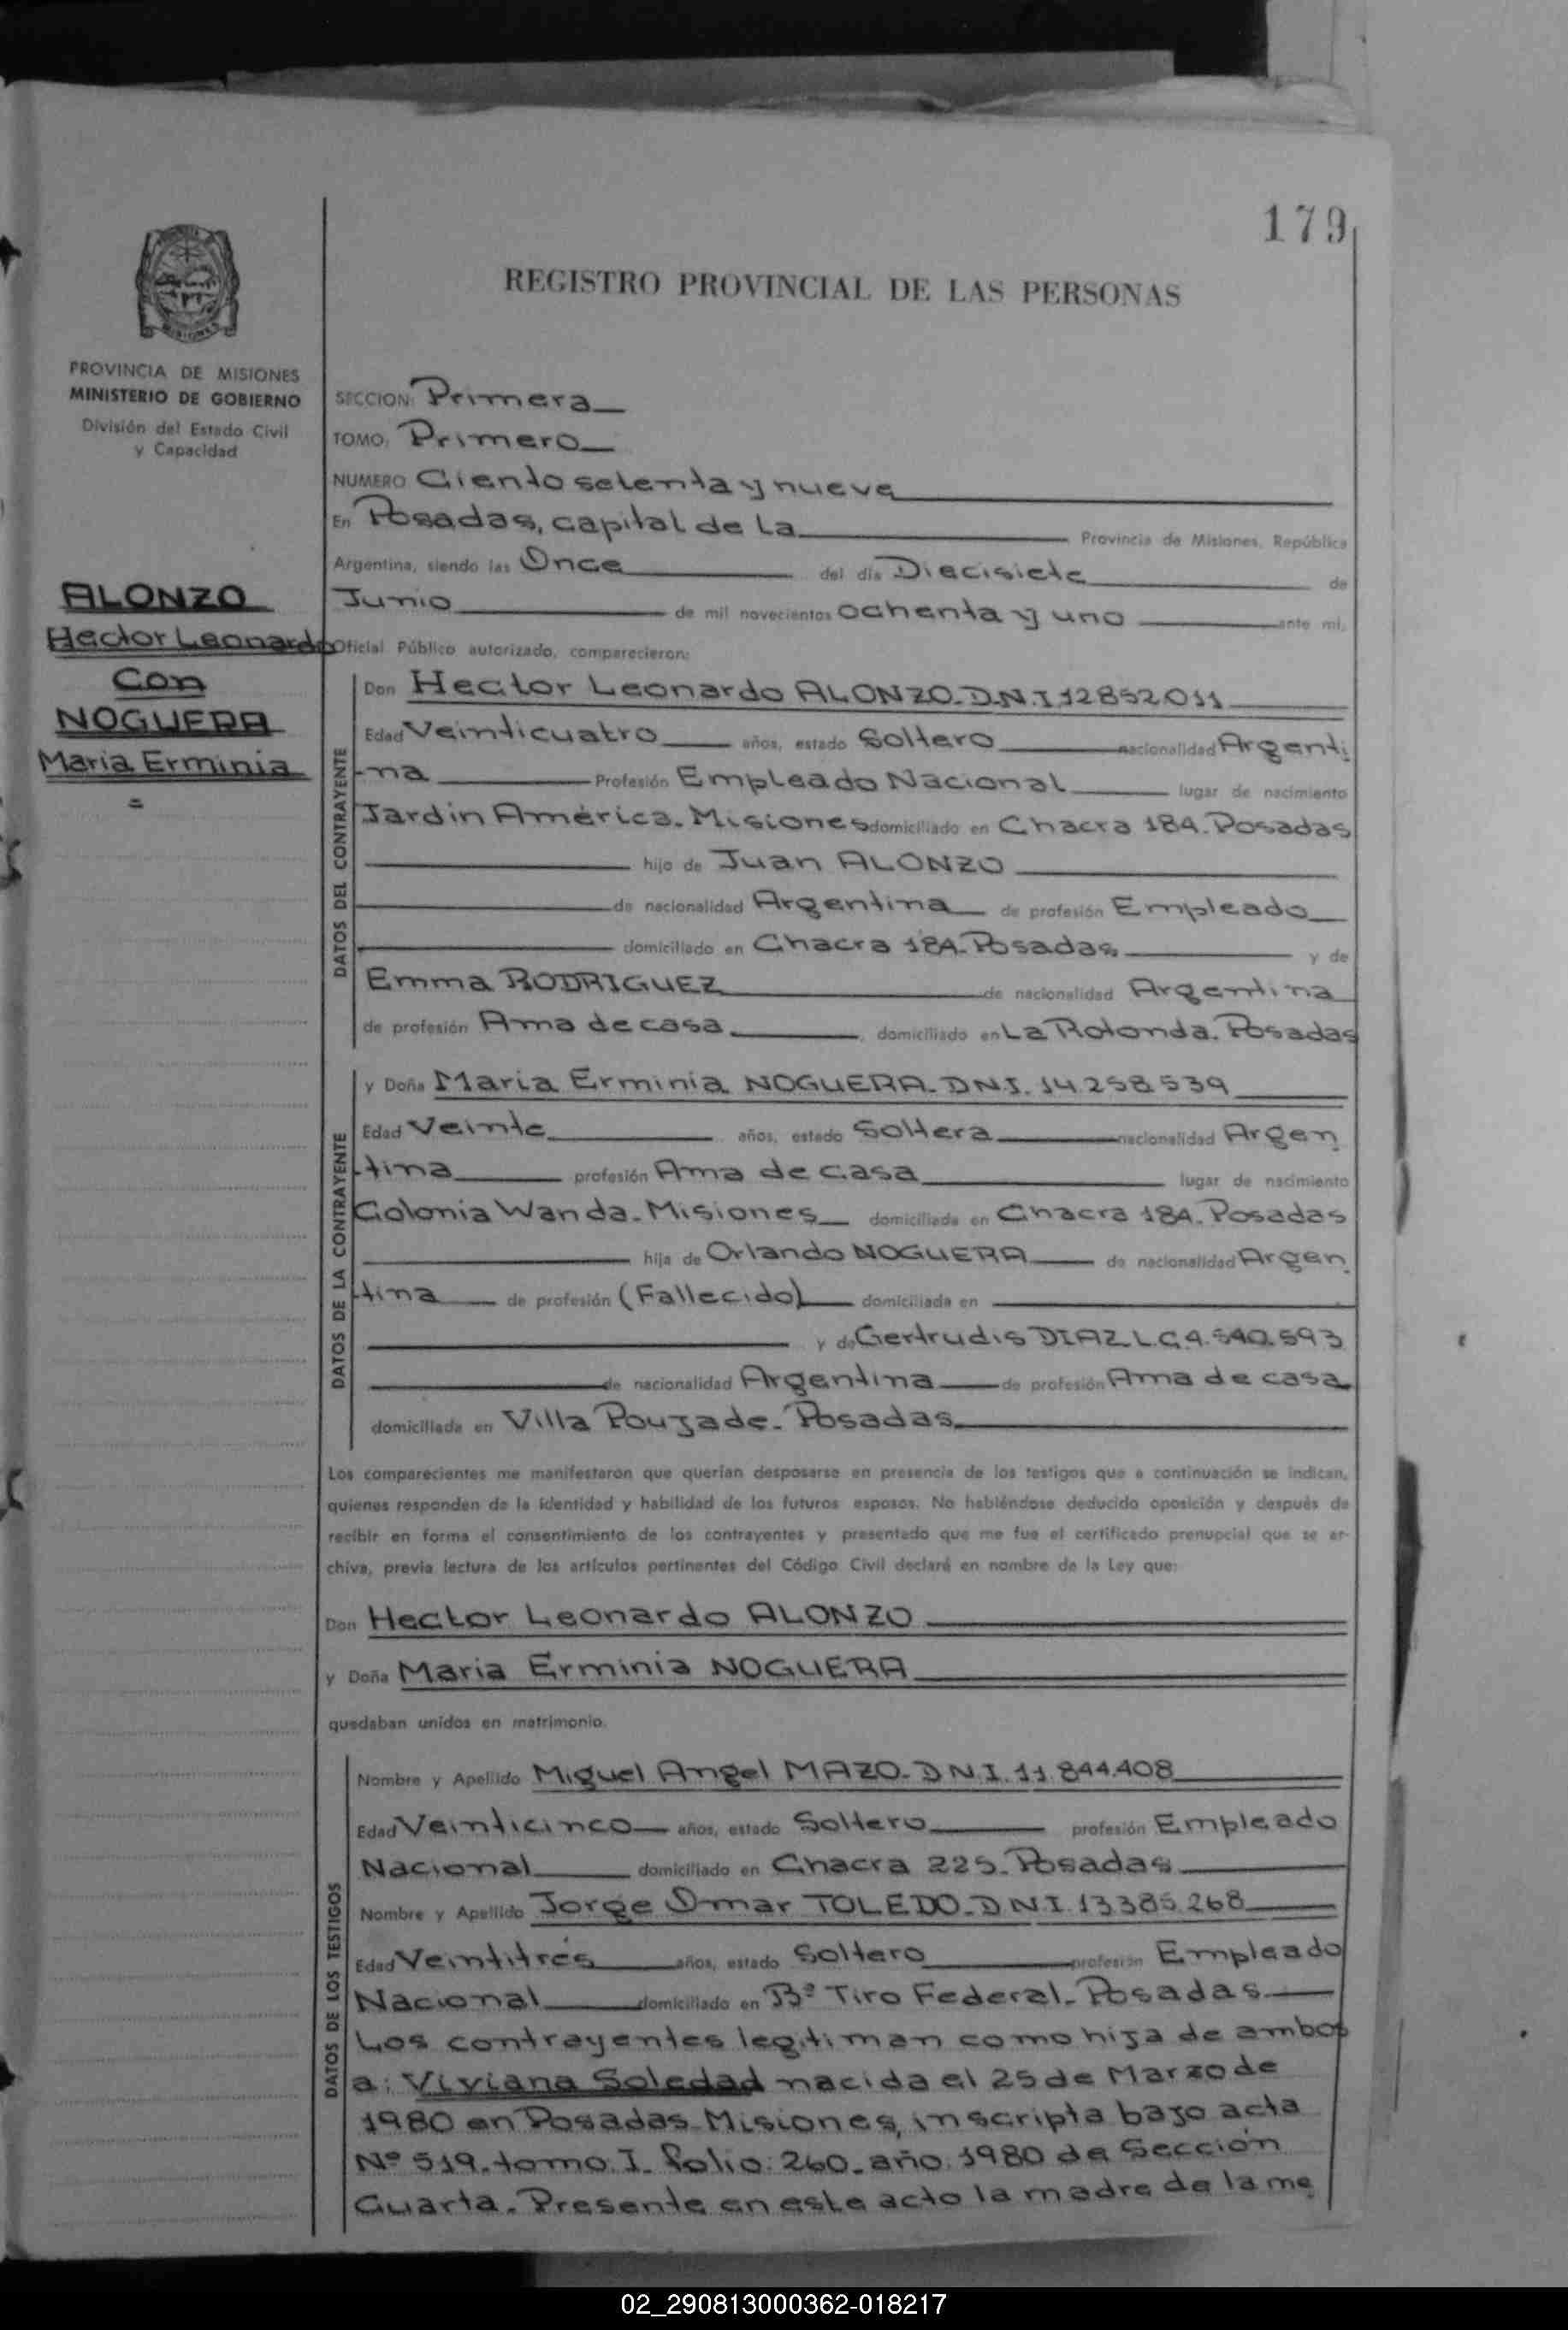 179
REGISTRO PROVINCIAL DE LAS PERSONAS
PROVINCIA DE MISIONES
MINISTERIO DE GOBIERNO
División del Estado Civil
y Capacidad
ALONZO
Hector Leonardo
Con
NOGUERA
Maria Erminia
=
SECCION: Primera
TOMO: Primero
NUMERO Ciento setenta y nueve
En Posadas, capital de La Provincia de Misiones, República
Argentina, siendo las Once del día Diecisiete de
Junio de mil novecientos ochenta y uno ante mi,
Oficial Público autorizado, comparecieron:
DATOS DEL CONTRAYENTE
Don Hector Leonardo ALONZO. D.N.I 12852.011
Edad Veinticuatro años, estado Soltero nacionalidad Argenti
-na Profesión Empleado Nacional lugar de nacimiento
Jardin América. Misiones domiciliado en Chacra 184. Posadas
hijo de Juan ALONZO
de nacionalidad Argentina de profesión Empleado
domiciliado en Chacra 184. Posadas y de
Emma RODRIGUEZ de nacionalidad Argentina
de profesión Ama de casa, domiciliado en La Rotonda. Posadas
DATOS DE LA CONTRAYENTE
y Doña Maria Erminia NOGUERA. D.N.I. 14.258.539
Edad Veinte años, estado Soltera nacionalidad Argen
-tina profesión Ama de casa lugar de nacimiento
Colonia Wanda. Misiones domiciliada en Chacra 184. Posadas
hija de Orlando NOGUERA de nacionalidad Argen
-tina de profesión (Fallecido) domiciliada en
y de Gertrudis DIAZ L.C. 4.540.593
de nacionalidad Argentina de profesión Ama de casa
domiciliada en Villa Poujade. Posadas
Los comparecientes me manifestaron que querían desposarse en presencia de los testigos que a continuación se indican,
quienes responden de la identidad y habilidad de los futuros esposos. No habiéndose deducido oposición y después de
recibir en forma el consentimiento de los contrayentes y presentado que me fue el certificado prenupcial que se ar-
chiva, previa lectura de los artículos pertinentes del Código Civil declaré en nombre de la Ley que:
Don Hector Leonardo ALONZO
y Doña Maria Erminia NOGUERA
quedaban unidos en matrimonio.
DATOS DE LOS TESTIGOS
Nombre y Apellido Miguel Angel MAZO. D.N.I. 11.844.408
Edad Veinticinco años, estado Soltero profesión Empleado
Nacional domiciliado en Chacra 225. Posadas
Nombre y Apellido Jorge Omar TOLEDO. D.N.I. 13385.268
Edad Veintitrés años, estado Soltero profesión Empleado
Nacional domiciliado en Bº Tiro Federal. Posadas
Los contrayentes legitiman como hija de ambos
a: Viviana Soledad nacida el 25 de Marzo de
1980 en Posadas Misiones, inscripta bajo acta
Nº 519. tomo: I. folio: 260. año: 1980 de Sección
Cuarta. Presente en este acto la madre de la me
02_290813000362-018217